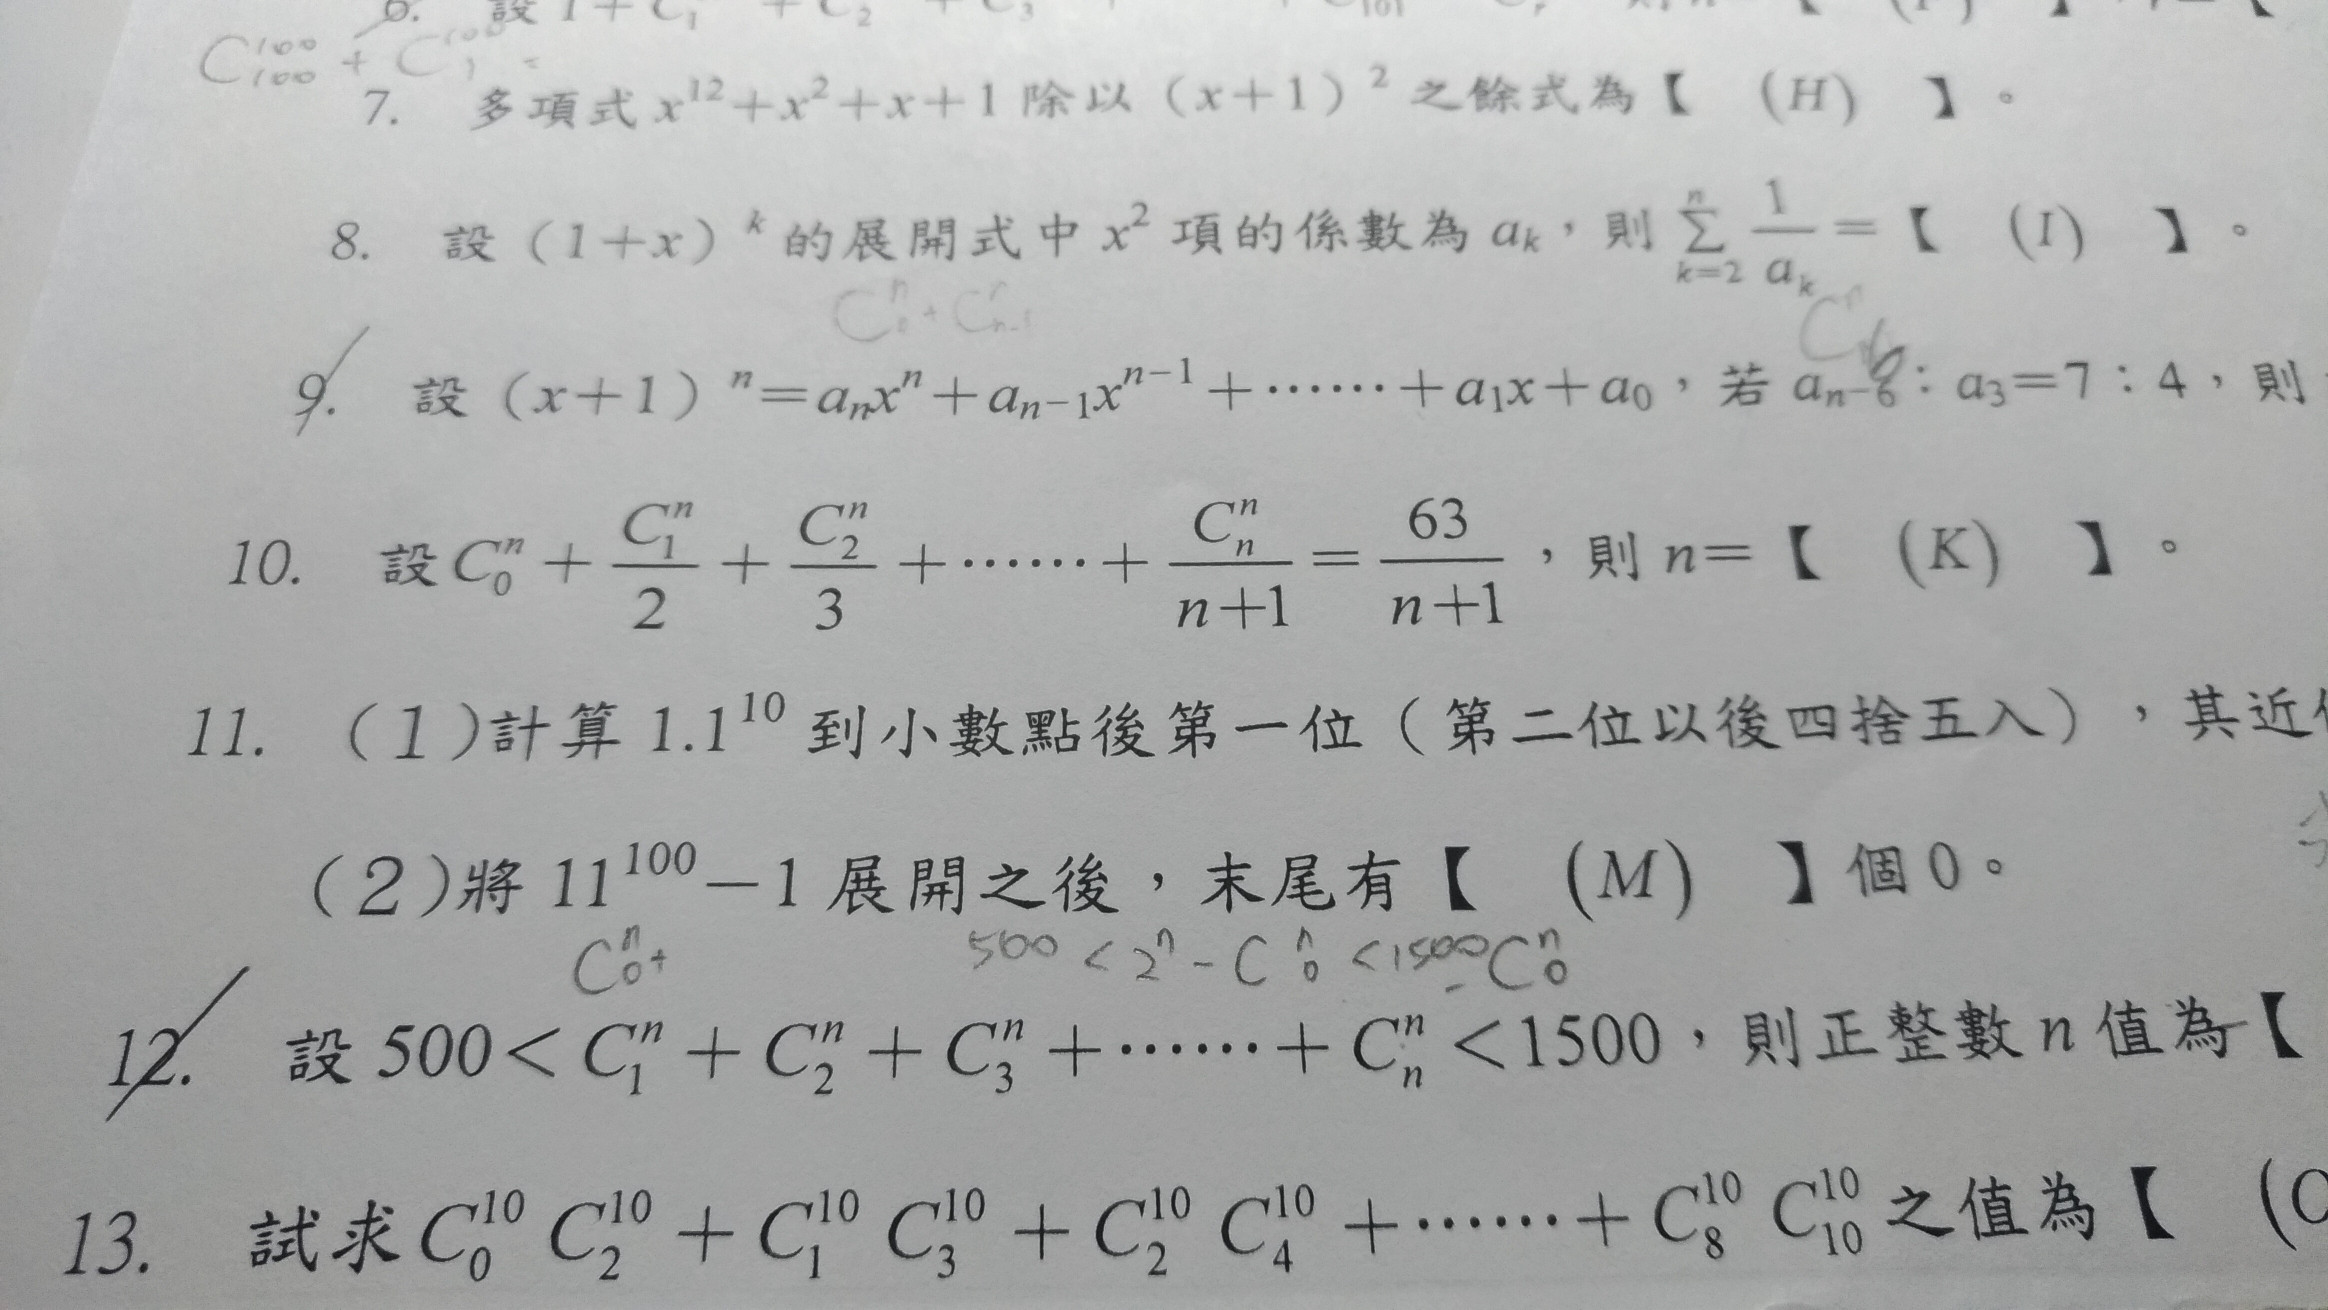 6. 設 1+C₁ +C₂ +C₃
C₁₀₀¹⁰⁰ + C₁¹⁰⁰ =
7. 多項式 x¹²+x²+x+1 除以（x+1）² 之餘式為【 (H) 】。
8. 設（1+x）ᵏ 的展開式中 x² 項的係數為 aₖ，則 Σ_{k=2}^{n} 1/aₖ =【 (I) 】。
9. 設（x+1）ⁿ=aₙxⁿ+aₙ₋₁xⁿ⁻¹+……+a₁x+a₀，若 aₙ₋₆：a₃=7：4，則
10. 設 C₀ⁿ + C₁ⁿ/2 + C₂ⁿ/3 +……+ Cₙⁿ/(n+1) = 63/(n+1)，則 n=【 (K) 】。
11. (1)計算 1.1¹⁰ 到小數點後第一位（第二位以後四捨五入），其近
(2)將 11¹⁰⁰－1 展開之後，末尾有【 (M) 】個 0。
C₀ⁿ+ 500 < 2ⁿ - C₀ⁿ < 1500 - C₀ⁿ
12. 設 500< C₁ⁿ + C₂ⁿ + C₃ⁿ +……+ Cₙⁿ <1500，則正整數 n 值為【
13. 試求 C₀¹⁰ C₂¹⁰ + C₁¹⁰ C₃¹⁰ + C₂¹⁰ C₄¹⁰ +……+ C₈¹⁰ C₁₀¹⁰ 之值為【